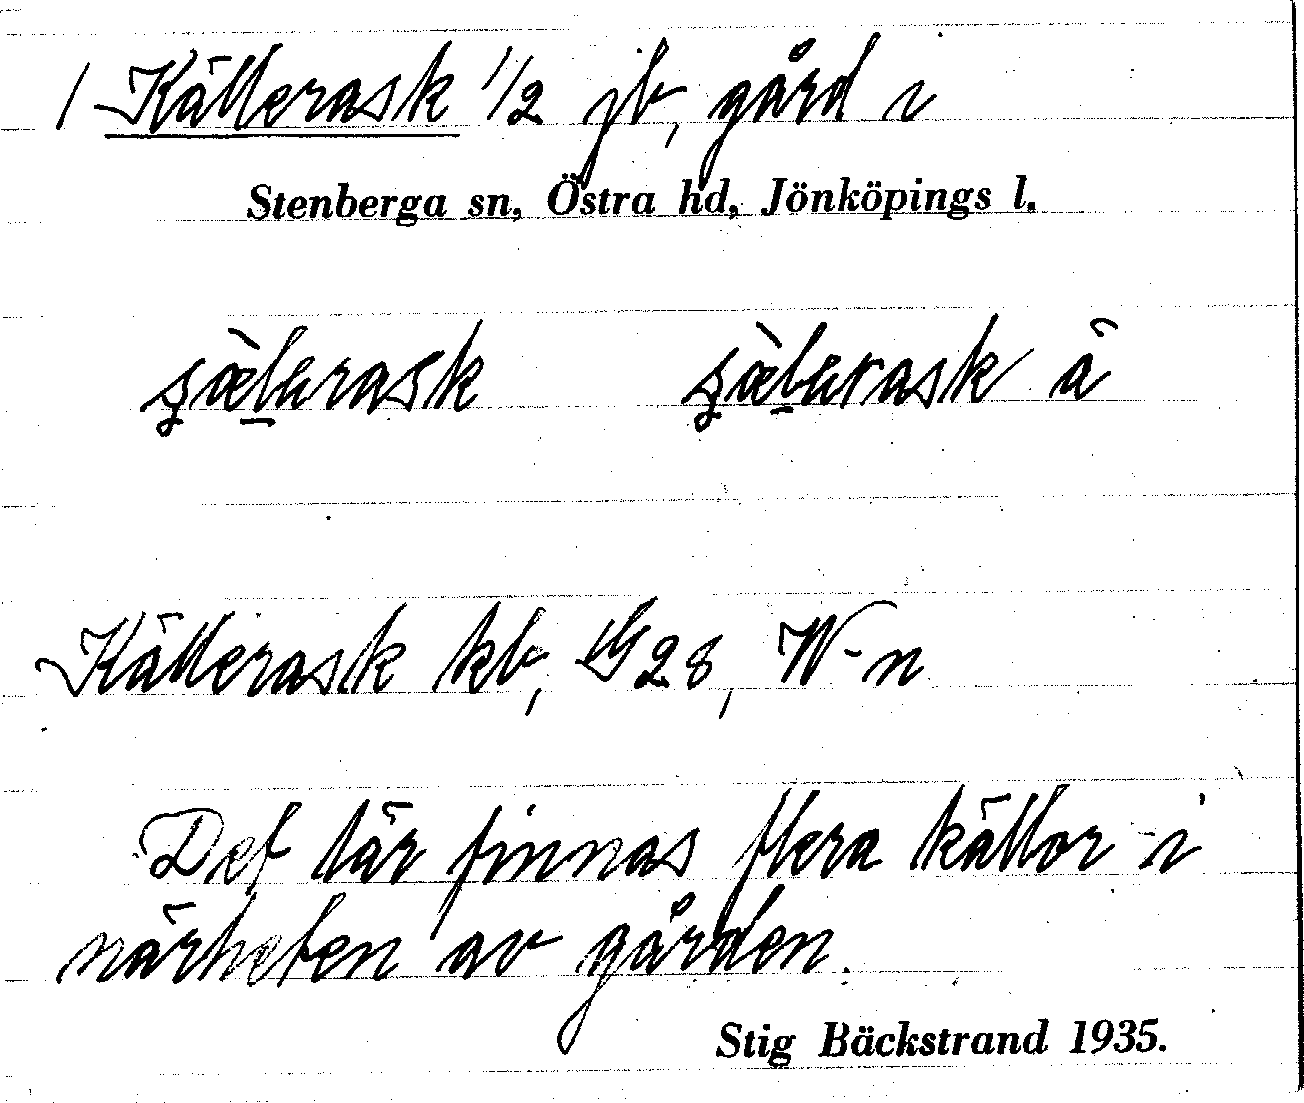 1 Källerask 1/2 jb, gård i
Stenberga sn, Östra hd, Jönköpings l.
Källerask kb, G28, W-n
Det lär finnas flera källor i
närheten av gården.
Stig Bäckstrand 1935.